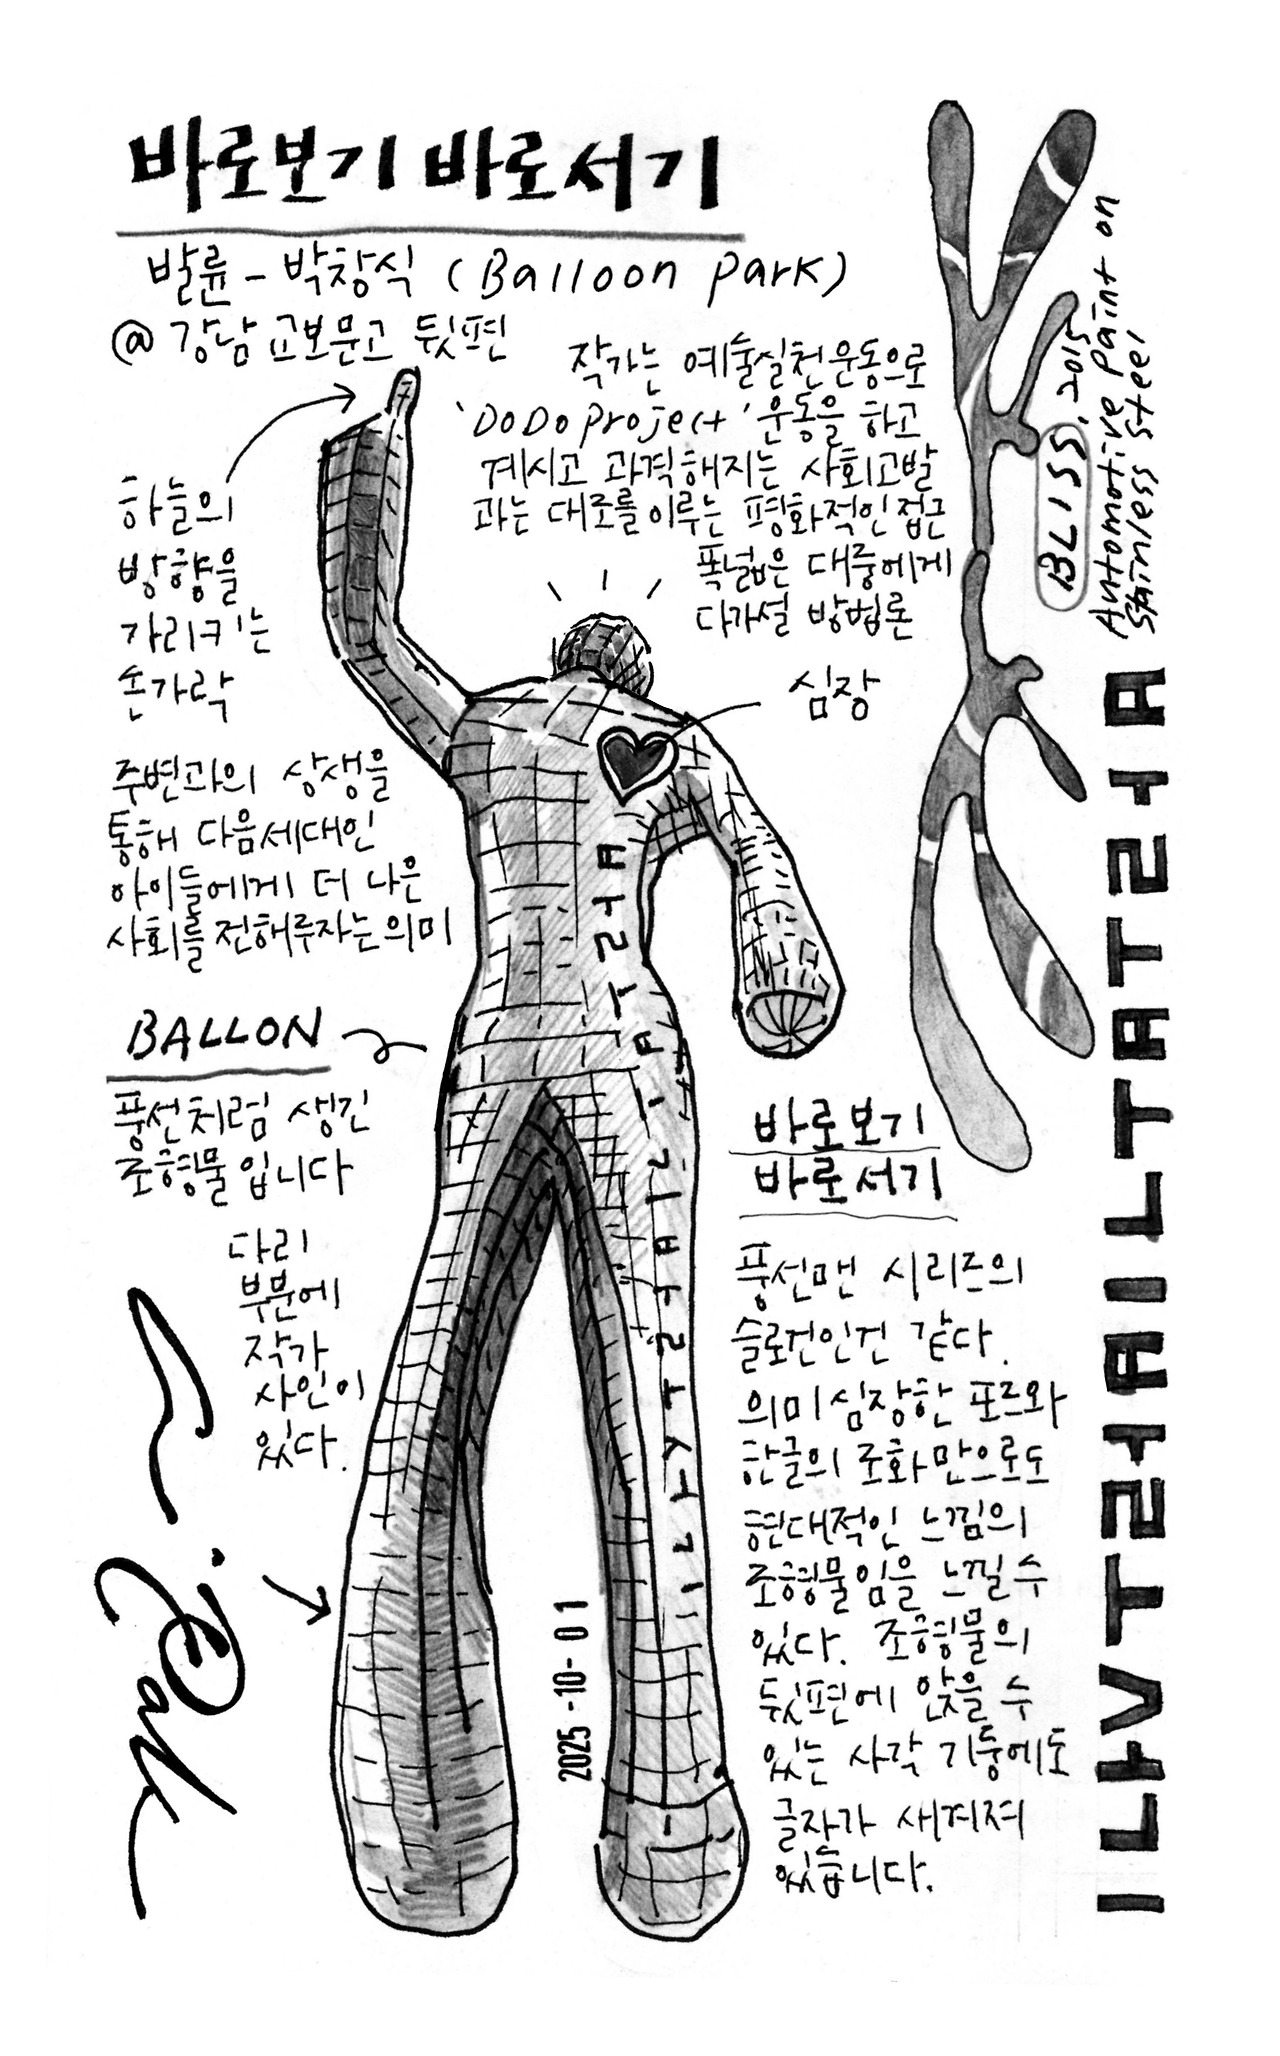 바로보기 바로서기
발륜 - 박창식 (Balloon park)
@ 강남 교보문고 뒷편
작가는 예술실천운동으로
'DODO project' 운동을 하고
계시고 과격해지는 사회고발
과는 대조를 이루는 평화적인 접근
폭넓은 대중에게
다가설 방법론
하늘의
방향을
가리키는
손가락
심장
주변과의 상생을
통해 다음세대인
아이들에게 더 나은
사회를 전해주자는 의미
BALLON
풍선처럼 생긴
조형물입니다
다리
부분에
작가
사인이
있다.
Park
ㅂㅏㄹㅗㅂㅗㄱㅣㅂㅏㄹㅗㅅㅓㄱㅣ
2025-10-01
BLISS, 2015
Automotive paint on
stainless steel
바로보기
바로서기
풍선맨 시리즈의
슬로건인건 같다.
의미심장한 포즈와
한글의 조화만으로도
현대적인 느낌의
조형물임을 느낄 수
있다. 조형물의
뒷편에 앉을 수
있는 사각 기둥에도
글자가 새겨져
있습니다.
ㅂㅏㄹㅗㅂㅗㄱㅣㅂㅏㄹㅗㅅㅓㄱㅣ